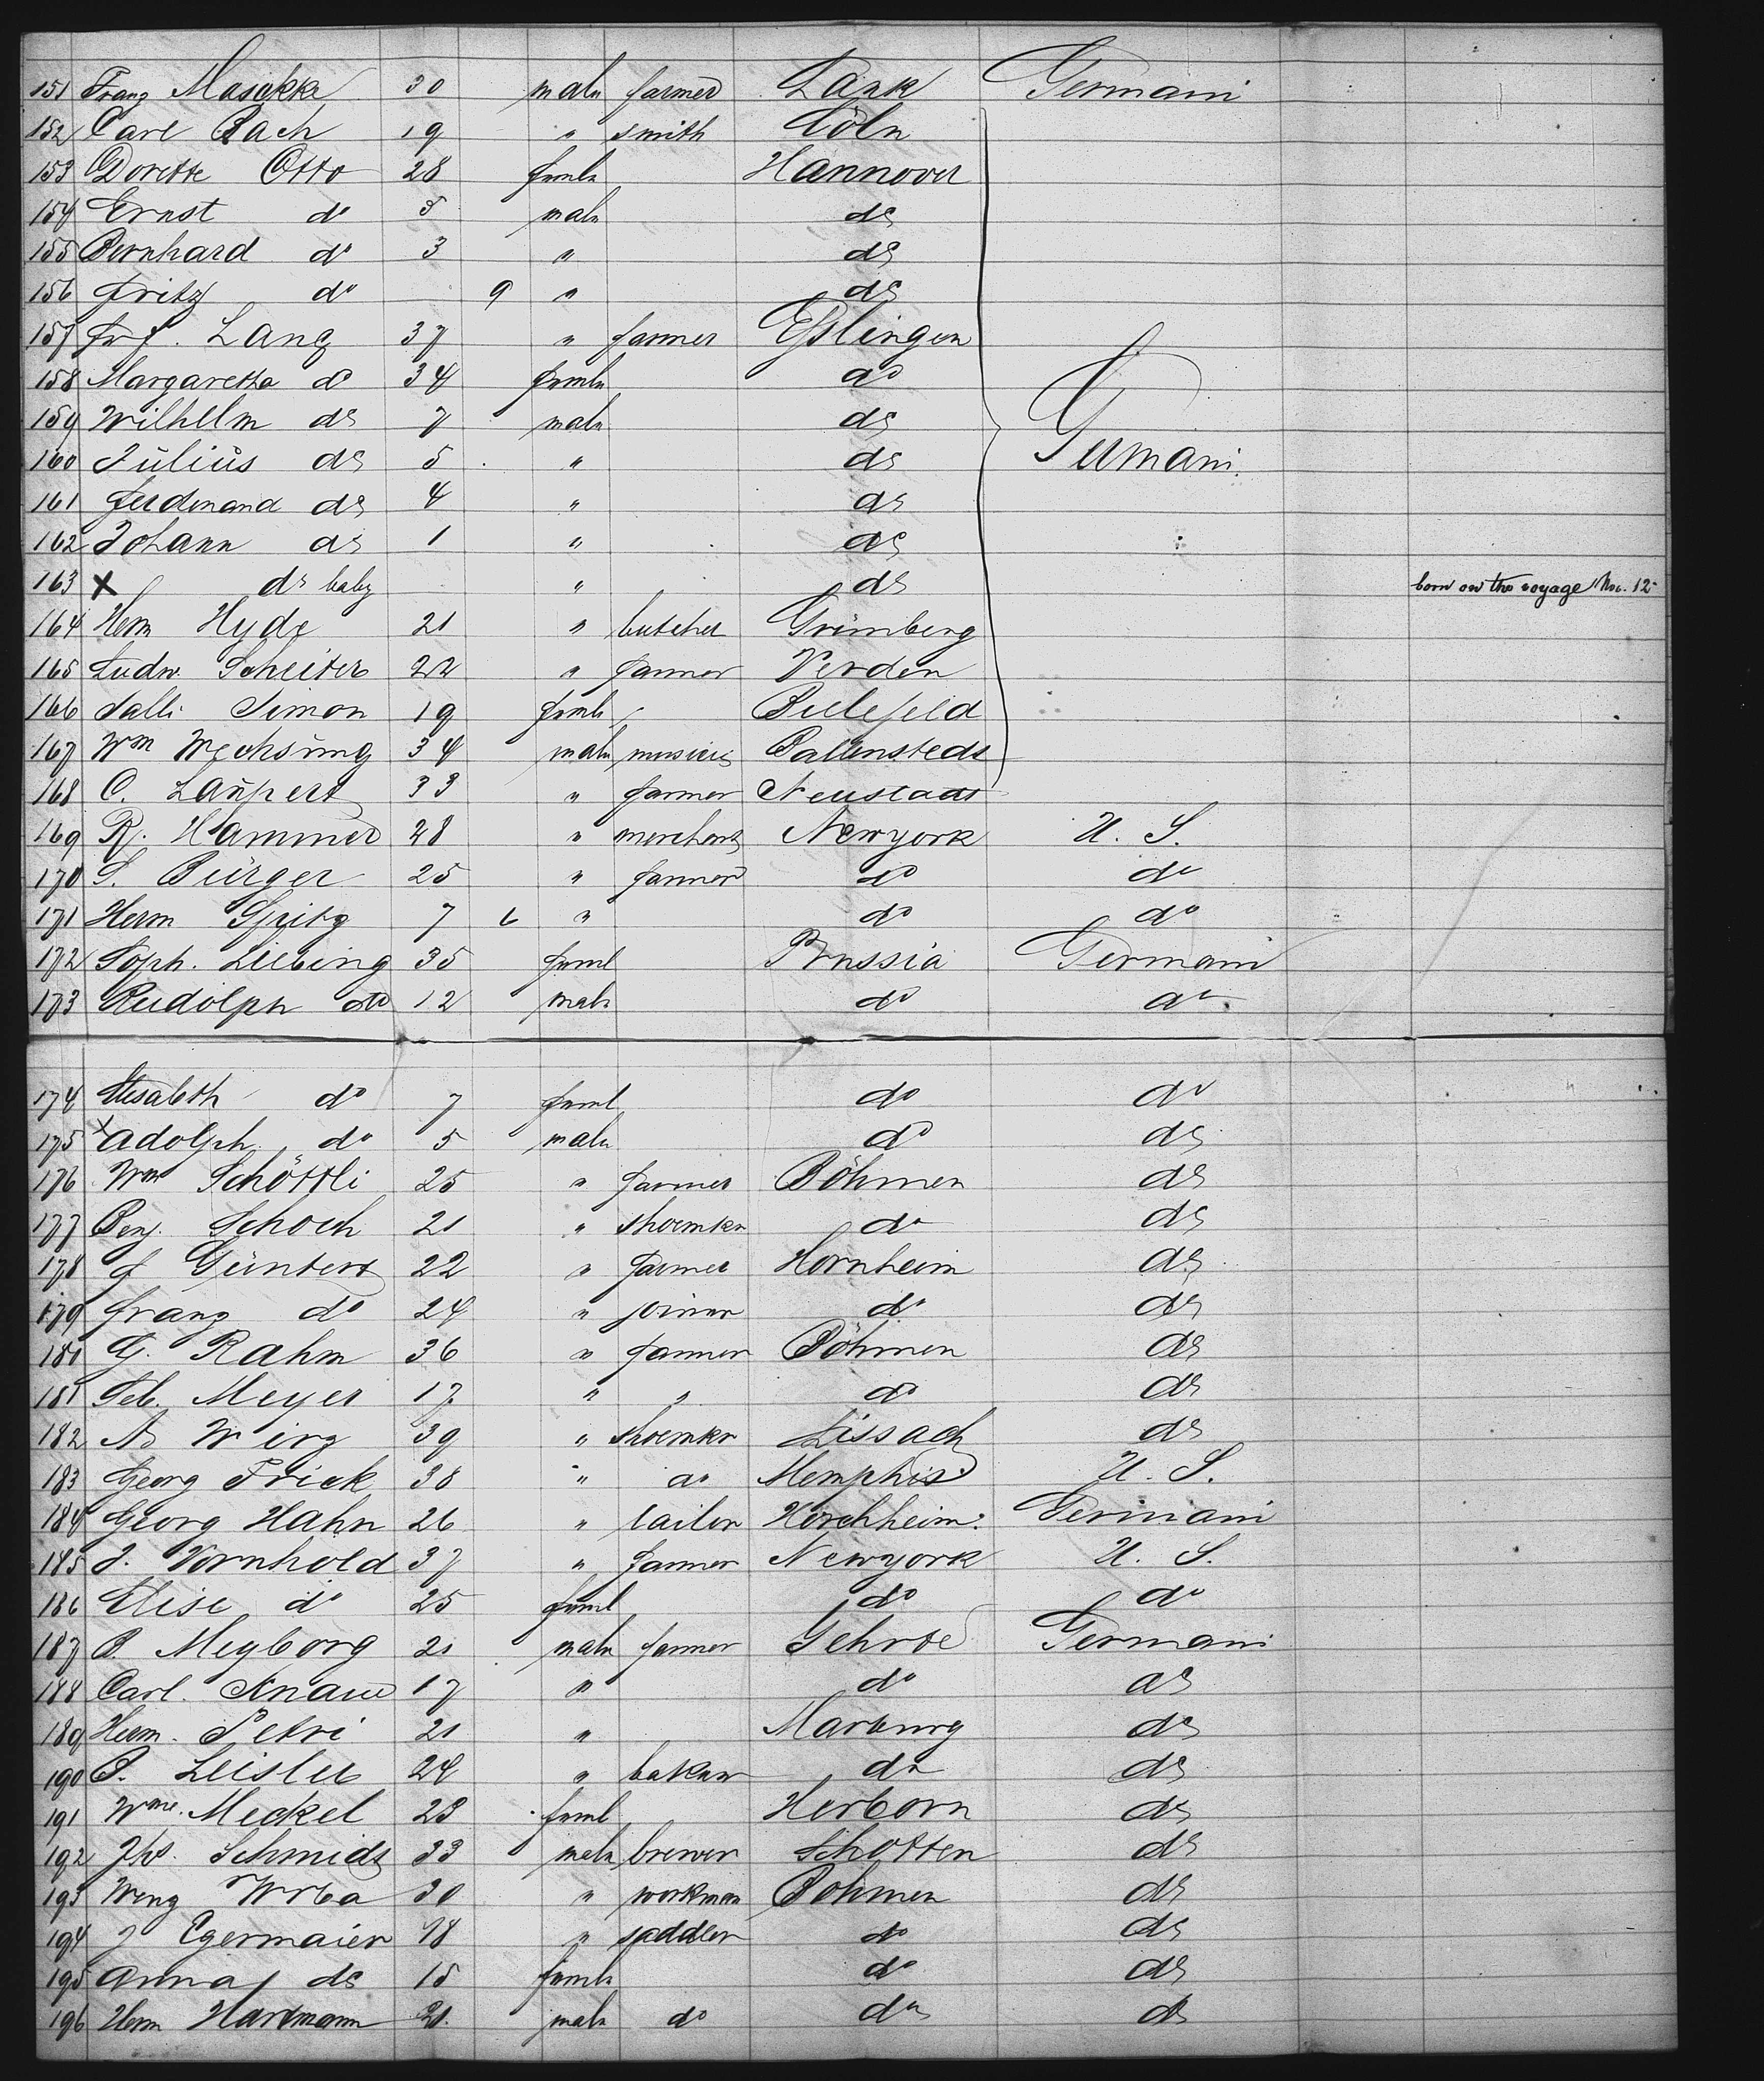 151 Franz Masakke 30 male farmer Lank Germani
152 Carl Bach 19 " smith Cöln
153 Dorette Otto 28 femle Hannover
154 Ernst do 5 male do
155 Bernhard do 3 " do
156 Fritz do 9 " do
157 Frd. Lang 37 " farmer Esslingen
158 Margaretha do 34 femle do
159 Wilhelm do 7 male do
160 Julius do 5 " do Germani
161 Ferdinand do 4 " do
162 Johann do 1 " do
163 X do baby " do born on the voyage Nov. 12
164 Herm Hyde 21 " butcher Grünberg
165 Ludw. Scheiter 22 " farmer Verden
166 Salli Simon 19 femle Bielefeld
167 Wm Wechsung 34 male Ballenstedt
168 C. Laupert 33 " farmer Neustadt
169 R. Hammer 28 " merchant Newyork U. S.
170 S. Bürger 25 " farmer do do
171 Herm Spitz 7 6 " do do
172 Soph. Liebing 35 feml Prussia Germani
173 Rudolph do 12 male do do
174 Elisabeth do 7 feml do do
175 x Adolph do 5 male do do
176 Wm Schöttli 25 " farmer Böhmen do
177 Benj. Schoch 21 " shoemkr do do
178 J Güntert 22 " farmer Hornheim do
179 Franz do 24 " joiner do do
180 G. Rahm 36 " farmer Böhmen do
181 Seb. Meyer 17 " " do do
182 Ad Wirz 39 " shoemkr Lissach do
183 Georg Frick 38 " do Memphis U. S.
184 Georg Hahn 26 " tailor Kirchheim Germani
185 J. Vornhold 37 " farmer Newyork U. S.
186 Elise do 25 feml do do
187 B. Meyborg 21 male farmer Gehrde Germani
188 Carl. Knaue 17 " do do
189 Herm. Petri 21 " Marburg do
190 P. Leisler 24 " baker do do
191 Wme. Meckel 23 feml Herborn do
192 Jhs. Schmidt 33 male brewer Schotten do
193 Wenz Wrba 30 " workman Bohmen do
194 J Egermaier 18 " saddler do do
195 Anna do 15 femle do do
196 Herm Hartmann 21 male do do do